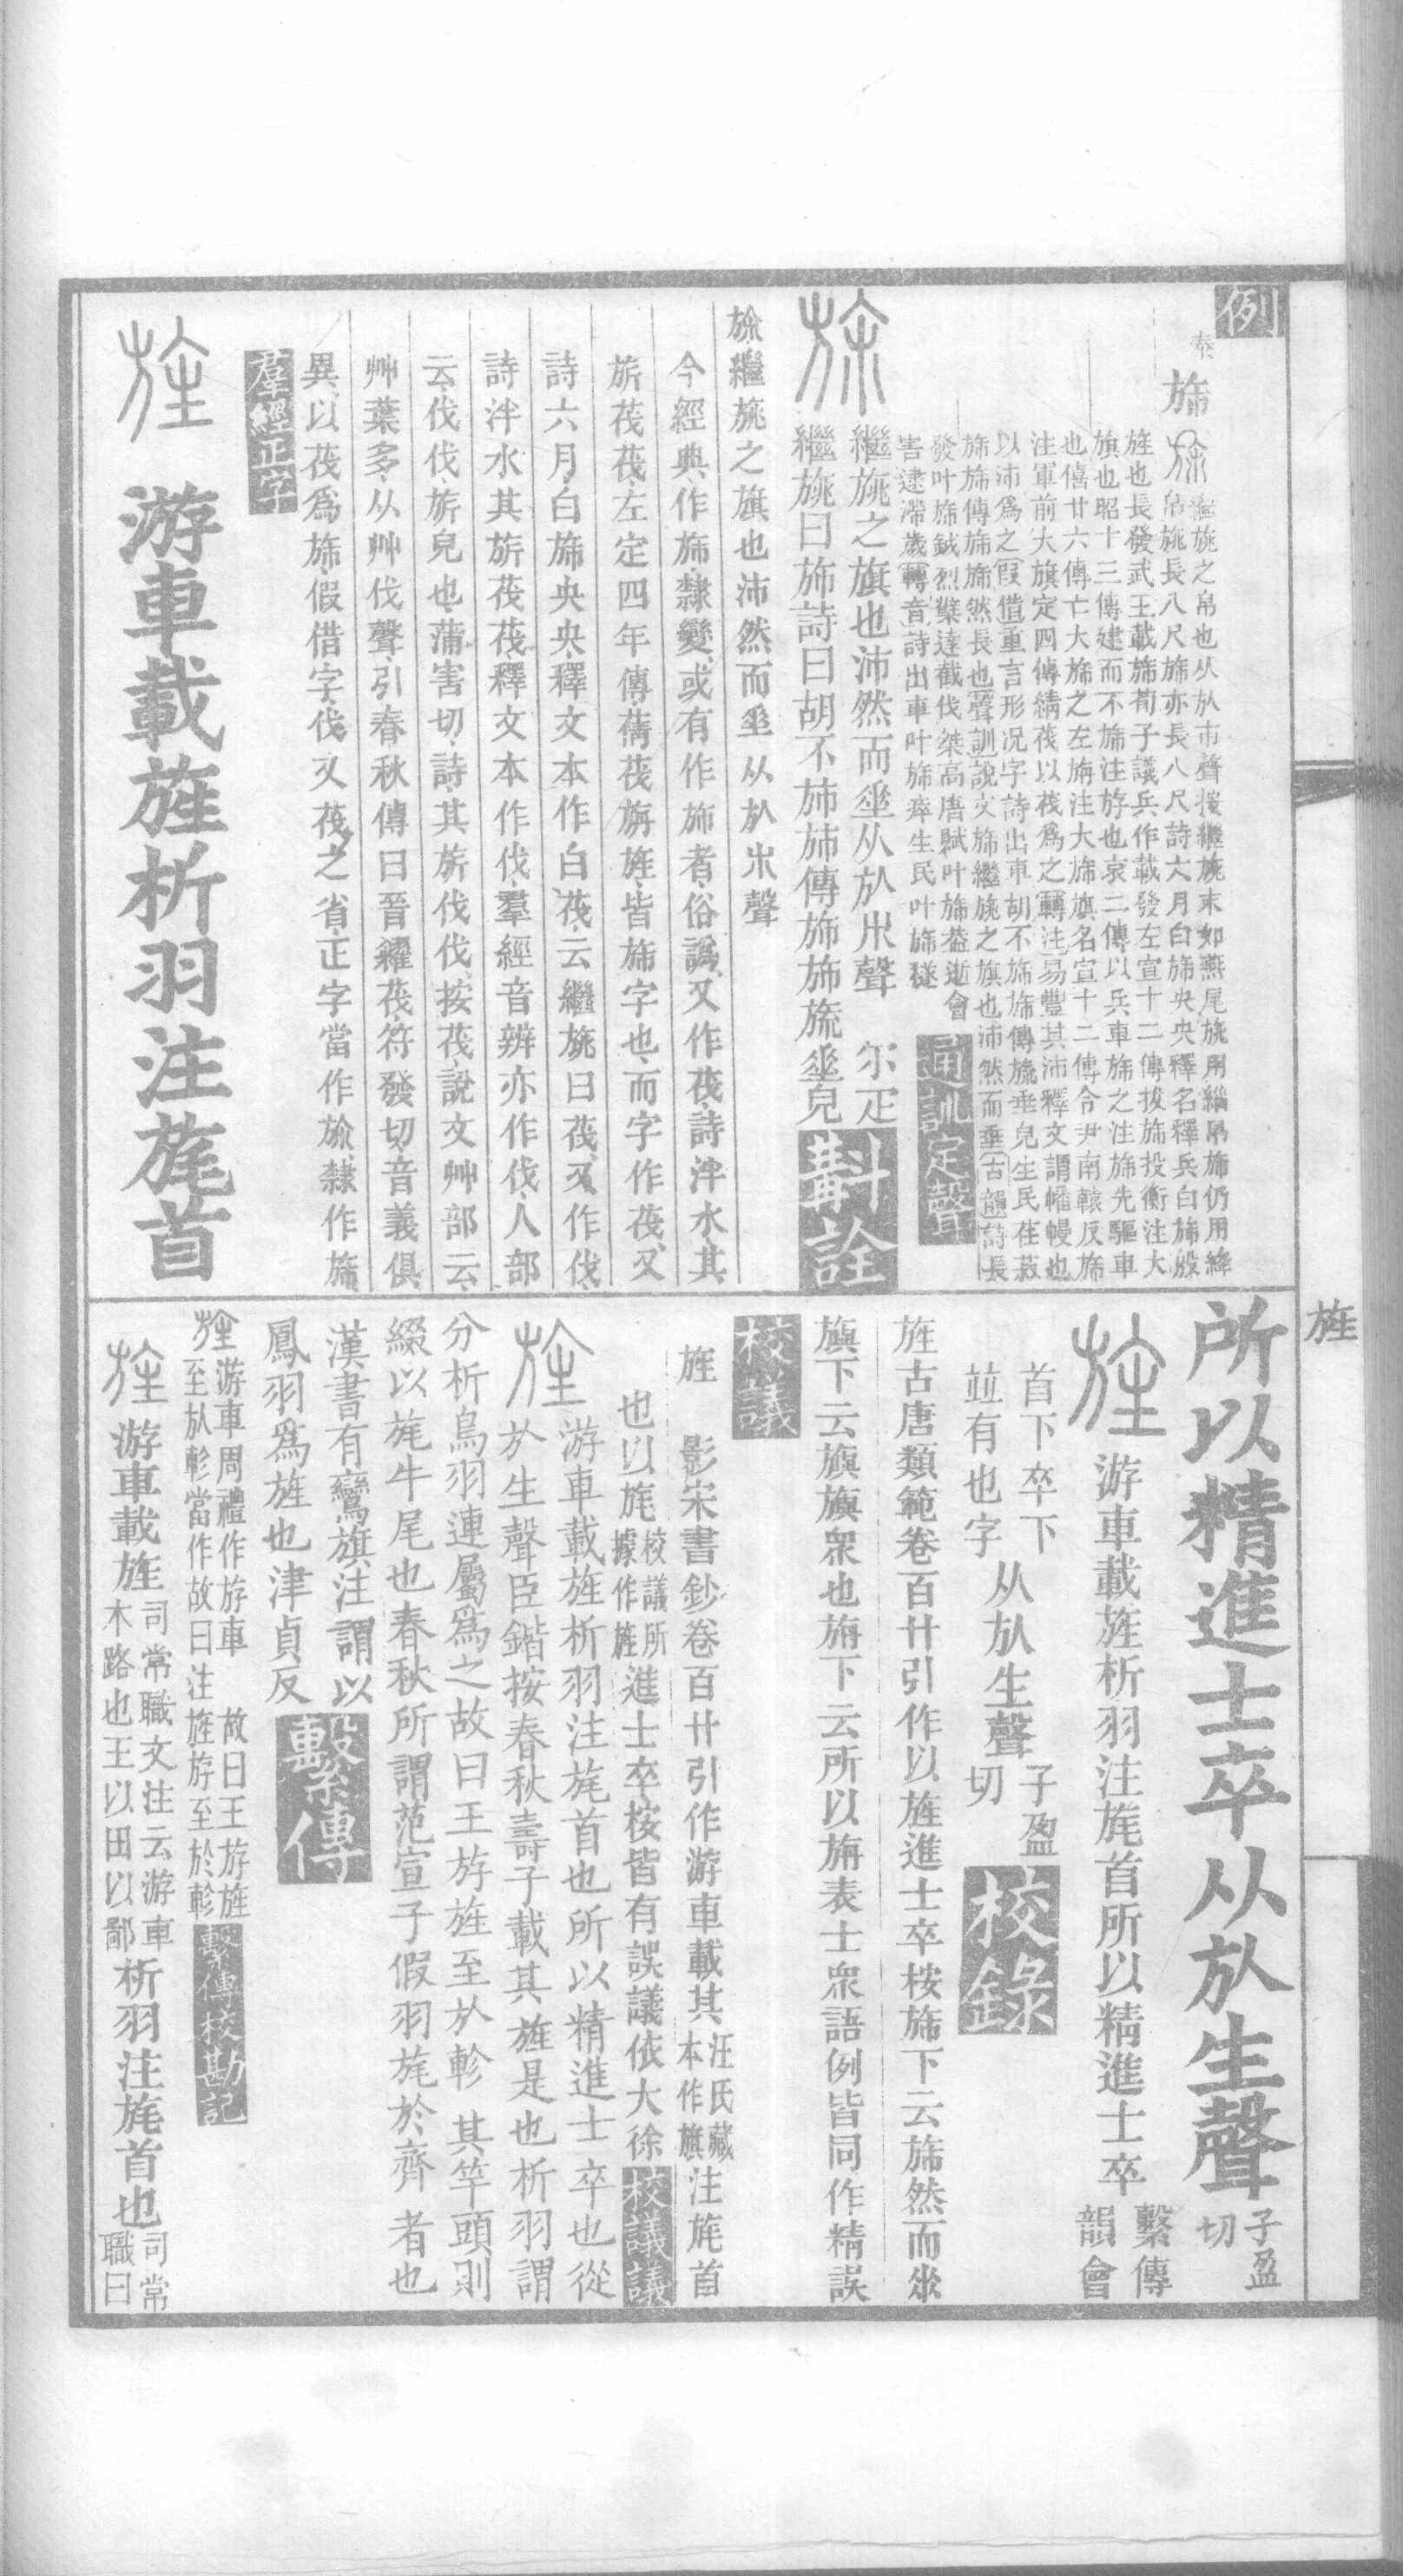 例
泰
旆
繼旐之帛也从㫃巿聲按繼旐末如燕尾旐用緇帛旆仍用絳
帛旐長八尺旆亦長八尺詩六月白旆央央釋名釋兵白旆殷
旌也長發武王載旆荀子議兵作載發左宣十二傳拔旆投衡注大
旗也昭十三傳建而不旆注斿也哀二傳以兵車旆之注旆先驅車
也僖廿八傳亡大旆之左旃注大旆旗名宣十二傳令尹南轅反旆
注軍前大旗定四傳綪茷以茷爲之轉注易豐其沛釋文謂幡幔也
以沛爲之叚借重言形況字詩出車胡不旆旆傳旒垂皃生民荏菽
旆旆傳旆旆然長也聲訓說文旆繼旐之旗也沛然而垂古韻詩長
發叶旆鉞烈櫱達截伐桀高唐賦叶旆葢逝會
害逮滯歲轉音詩出車叶旆瘁生民叶旆穟
通訓定聲
繼旐之旗也沛然而垂从㫃巿聲 尒疋
繼旐曰旆詩曰胡不旆旆傳旆旆旒垂皃
斠詮
旆繼旐之旗也沛然而垂从㫃巿聲
今經典作旆隸變或有作斾者俗譌又作茷詩泮水其
旂茷茷左定四年傳蒨茷旃旌皆旆字也而字作茷又
詩六月白旆央央釋文本作白茷云繼旐曰茷又作伐
詩泮水其旂茷茷釋文本作伐羣經音辨亦作伐人部
云伐伐旂皃也蒲害切詩其旂伐伐按茷說文艸部云
艸葉多从艸伐聲引春秋傳曰晉糴茷符發切音義俱
異以茷爲旆假借字伐又茷之省正字當作旆隸作旆
羣經正字
游車載旌析羽注旄首
所以精進士卒从㫃生聲 子盈切
游車載旌析羽注旄首所以精進士卒 繫傳韻會
首下卒下
竝有也字
从㫃生聲 子盈切
校錄
旌古唐類範卷百廿引作以旌進士卒桉旆下云旆然而垂
旗下云旟旟衆也旃下云所以旃表士衆語例皆同作精誤
校議
旌 影宋書鈔卷百廿引作游車載其 汪氏藏本作旗 注旄首
也以旄 校議所據作旌 進士卒桉皆有誤議依大徐
校議議
游車載旌析羽注旄首也所以精進士卒也從
㫃生聲臣鍇按春秋壽子載其旌是也析羽謂
分析鳥羽連屬爲之故曰王斿旌至於軫 其竿頭則
綴以旄牛尾也春秋所謂范宣子假羽旄於齊 者也
漢書有鸞旗注 謂以
鳳羽爲旌也津貞反
繫傳
游車周禮作斿車 故曰王斿旌
至㫃軫當作故曰注旌斿至於軫
繫傳校勘記
游車載旌 司常職文注云游車木路也王以田以鄙 析羽注旄首也 司常職曰
旌